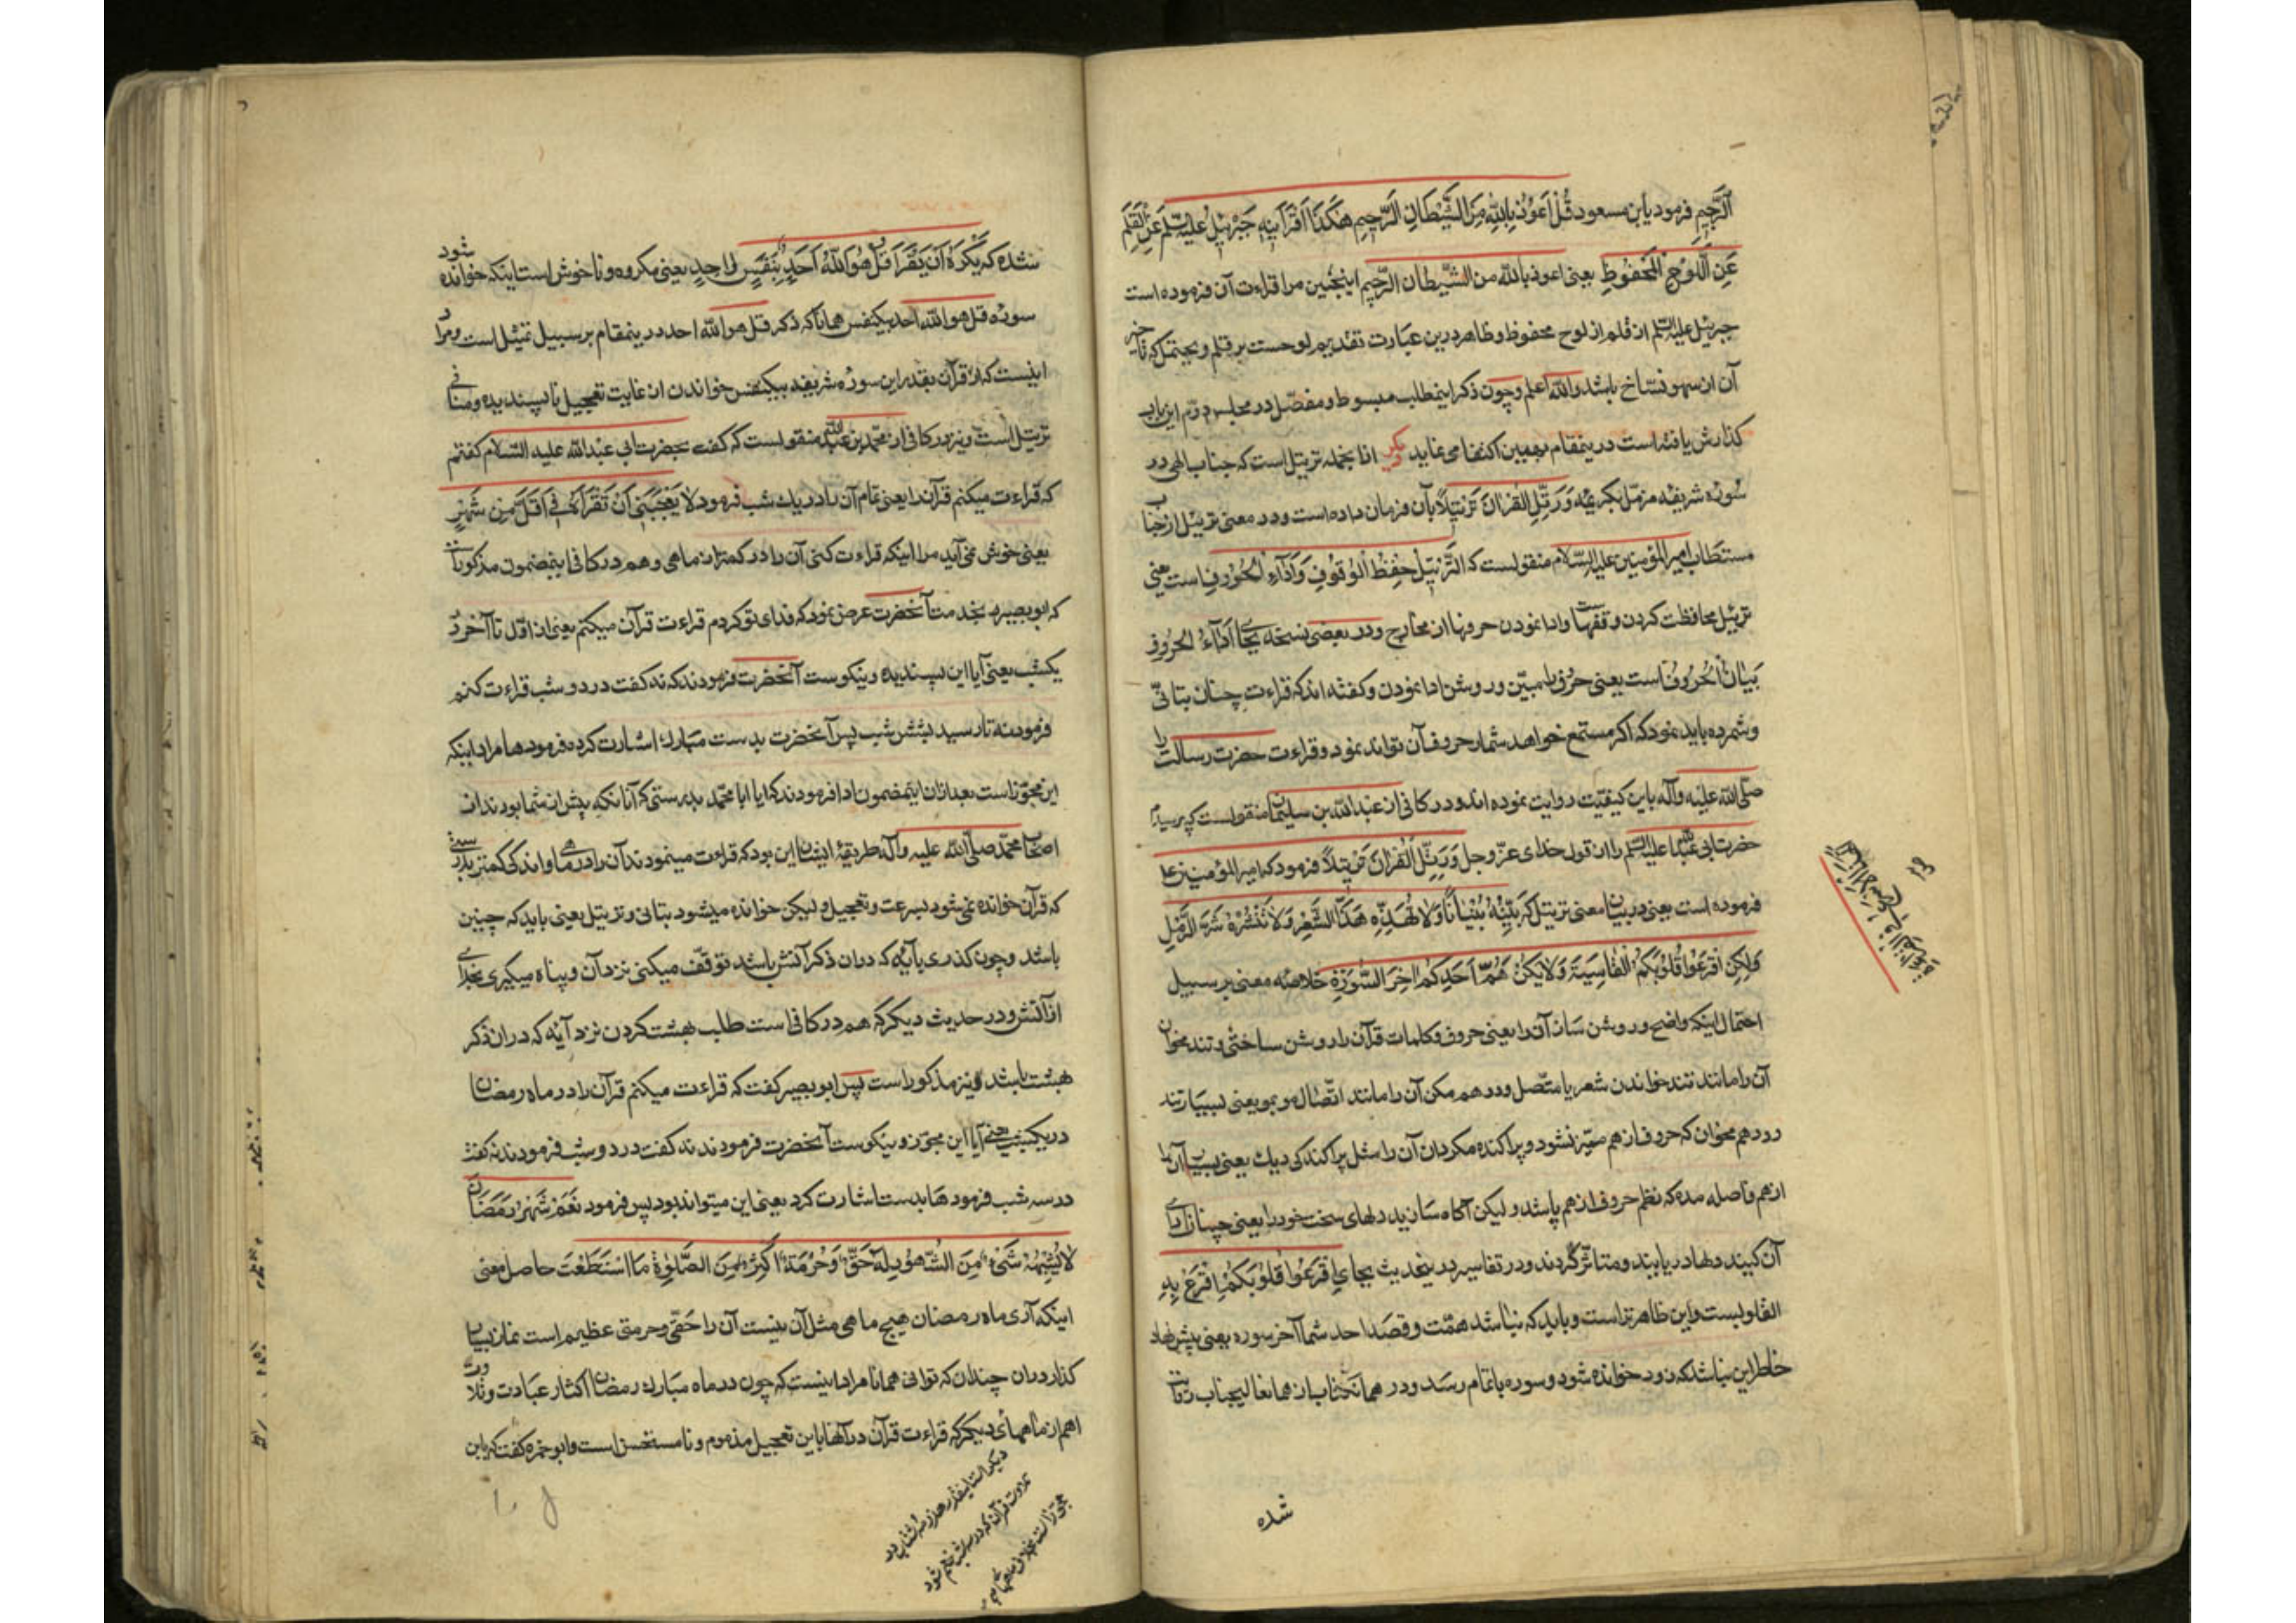 الرَّجِيمِ فرمود یابن مسعود قُلْ اَعُوذُ بِاللّٰهِ مِنَ الشَّيْطَانِ الرَّجِيمِ هٰكَذَا اَقْرَأَنِيهِ جَبْرَئِيلُ عليه السلم عَنِ الْقَلَمِ
عَنِ اللَّوْحِ الْمَحْفُوظِ یعنی اعوذ بالله من الشیطان الرجیم اینچنین مرا قراءت آن فرموده است
جبرئیل علیه السلم از قلم از لوح محفوظ و ظاهر درین عبارت تقدیم لوحست بر قلم و یحتمل که تأخیر
آن از سهو نسّاخ باشد والله اعلم و چون ذکر اینمطلب مبسوط و مفصّل در مجلس دوّم این باب
کذارش یافته است درینمقام بهمین اکتفا می نماید دیکر از انجمله ترتیل است که جناب الهی در
سوره شریفه مزمّل بکریمه وَرَتِّلِ الْقُرْاٰنَ تَرْتِيلًا بآن فرمان داده است و در معنی ترتیل از جناب
مستطاب امیر المؤمنین علیه السّلام منقولست که التَّرْتِيلُ حِفْظُ الْوُقُوفِ وَاَدَآءُ الْحُرُوفِ است یعنی
ترتیل محافظت کردن وقفهاست و ادا نمودن حروفها از مخارج و در بعضی نسخه بجای اَدَآءُ الْحُرُوفِ
بَيَانُ الْحُرُوفِ است یعنی حرفرا مبیّن و روشن ادا نمودن و کفته اند که قراءت چنان بتانّی
و شمرده باید نمود که اکر مستمع خواهد شمار حروف آن تواند نمود و قراءت حضرت رسالت را
صلّی الله علیه وآله باین کیفیّت روایت نموده اند و در کافی از عبدالله بن سلیمان منقولست که پرسیدم
حضرت ابی عبدالله علیه السلم را از قول خدای عزّ و جل وَرَتِّلِ الْقُرْاٰنَ تَرْتِيلًا فرمود که امیر المؤمنین ع
فرموده است یعنی در بیان معنی ترتیل که بَيِّنْهُ تِبْيَانًا وَلَا تَهُذَّهُ هَذَّ الشِّعْرِ وَلَا تَنْثُرْهُ نَثْرَ الرَّمْلِ
وَلٰكِنِ اَفْزِعُوا قُلُوبَكُمُ الْقَاسِيَةَ وَلَا يَكُنْ هَمُّ اَحَدِكُمْ اٰخِرَ السُّورَةِ خلاصه معنی بر سبیل
احتمال اینکه واضح و روشن ساز آن را یعنی حروف و کلمات قرآن را روشن ساخته و تند مخوان
آن را مانند تند خواندن شعر یا متّصل و درهم مکن آن را مانند اتّصال مو بمو یعنی بسیار تند
و درهم مخوان که حروف از هم متمیّز نشود و پراکنده مکردان آن را مثل پراکندکی ریک یعنی بسیار آنرا
از هم فاصله مده که نظم حروف از هم پاشد و لیکن آکاه سازید دلهای سخت خود را یعنی چنان ادای
آن کنید دلها دریابند و متاثّر گردند و در تفاسیر در ینحدیث بجای اِفْزَعُوا قُلُوبَكُمْ اِقْرَعْ بِهِ
القلوبست و این ظاهرتر است و باید که نباشد همّت و قصد احد شما آخر سوره یعنی پیش نهاد
خاطر این نباشد که زود خوانده شود و سوره باتمام رسد و در همان کتاب از همان عالیجناب روایت
شده
شده که يُكْرَهُ اَنْ يُقْرَأَ قُلْ هُوَ اللّٰهُ اَحَدٌ بِنَفَسٍ وَاحِدٍ یعنی مکروه و ناخوش است اینکه خوانده شود
سوره قل هو الله احد بیکنفس همانا که ذکر قل هو الله احد درینمقام بر سبیل تمثیل است و مراد
اینست که از قرآن بقدر این سوره شریفه بیکنفس خواندن از غایت تعجیل ناپسندیده و منافی
ترتیل است و نیز در کافی از محمّد بن عبدالله منقولست که کفت بحضرت ابی عبدالله علیه السّلام کفتم
که قراءت میکنم قرآن را یعنی تمام آن را در یک شب فرمود لَا يُعْجِبُنِي اَنْ تَقْرَأَهُ فِي اَقَلَّ مِنْ شَهْرٍ
یعنی خوش نمی آید مرا اینکه قراءت کنی آن را در کمتر از ماهی و هم در کافی اینمضمون مذکور است
که ابو بصیر بخدمت آنحضرت عرض نمود که فدای تو کردم قراءت قرآن میکنم یعنی از اوّل تا آخر در
یکشب یعنی آیا این پسندیده و نیکوست آنحضرت فرمودند که نه کفت در دو شب قراءت کنم
فرمود نه تا رسید بشش شب پس آنحضرت بدست مبارک اشارت کرده فرمود ها مراد اینکه
این مجوّز است بعد ازان اینمضمون ادا فرمودند که ایا ابا محمّد بدرستی که آنانکه پیش از شما بودند از
اصحاب محمّد صلّی الله علیه وآله طریقۀ ایشان این بود که قراءت مینمودند آن را در ماهی و اندکی کمتر بدرستی
که قرآن خوانده نمی شود بسرعت و تعجیل و لیکن خوانده میشود بتانی و ترتیل یعنی باید که چنین
باشد و چون کذری بآیه که دران ذکر آتش باشد توقّف میکنی نزد آن و پناه میکیری بخدای
از آتش و در حدیث دیکر که هم در کافی است طلب بهشت کردن نزد آیه که دران ذکر
بهشت باشد نیز مذکور است پس ابو بصیر کفت که قراءت میکنم قرآن را در ماه رمضان
در یکشب یعنی آیا این مجوّز و نیکوست آنحضرت فرمودند نه کفت در دو شب فرمودند نه کفت
در سه شب فرمود ها بدست اشارت کرد یعنی این میتواند بود پس فرمود نَعَمْ شَهْرُ رَمَضَانَ
لَا يُشْبِهُهُ شَيْءٌ مِنَ الشُّهُورِ لَهُ حَقٌّ وَحُرْمَةٌ اَكْثِرْ مِنَ الصَّلٰوةِ مَا اسْتَطَعْتَ حاصل معنی
اینکه آری ماه رمضان هیچ ماهی مثل آن نیست آن را حقّی و حرمتی عظیم است نماز بسیار
کذار دران چندان که توانی همانا مراد اینست که چون در ماه مبارک رمضان اکثار عبادت و تلاوت
اهم از ماههای دیکر که قراءت قرآن در آنها باین تعجیل مذموم و نامستحسن است و ابو حمزه کفت که باین